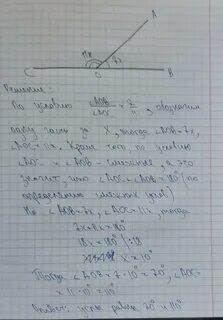 A
11x
7x
C
O
B
Решение:
По условию ∠AOB/∠AOC = 7/11, обозначим
одну часть за X, тогда ∠AOB=7x,
∠AOC=11x. Кроме того, по условию
∠AOC и ∠AOB - смежные, а это
значит, что ∠AOC+∠AOB=180° (по
определению смежных углов)
Но ∠AOB=7x, ∠AOC=11x, тогда
7x+11x=180°
18x=180° |:18
x=10°
Тогда ∠AOB=7·10°=70°, ∠AOC=
=11·10°=110°
Ответ: углы равны 70° и 110°